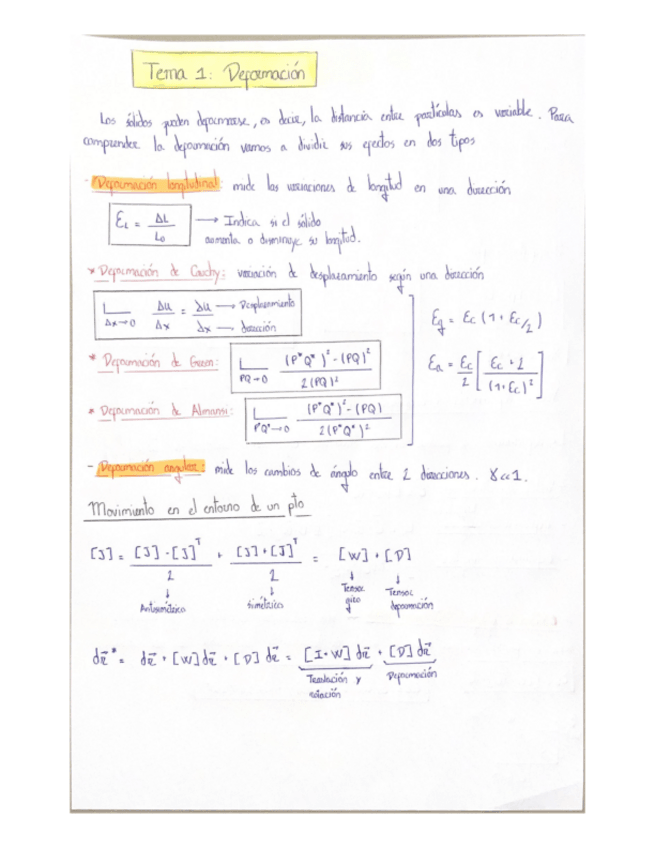 Tema 1: Deformación
Los sólidos pueden deformarse, es decir, la distancia entre partículas es variable. Para
comprender la deformación vamos a dividir sus efectos en dos tipos
- Deformación longitudinal: mide las variaciones de longitud en una dirección
εL = ΔL / L0 → Indica si el sólido
aumenta o disminuye su longitud.
* Deformación de Cauchy: variación de desplazamiento según una dirección
L Δx→0 Δu/Δx = du/dx → Desplazamiento → dirección
εg = εc (1 + εc/2)
* Deformación de Green: L PQ→0 ((P*Q*)² - (PQ)²) / 2(PQ)²
εa = εc/2 [ (εc + 2) / (1+εc)² ]
* Deformación de Almansi: L P*Q*→0 ((P*Q*)² - (PQ)) / 2(P*Q*)²
- Deformación angular: mide los cambios de ángulo entre 2 direcciones. γ << 1.
Movimiento en el entorno de un pto
[J] = ([J] - [J]^T) / 2 + ([J] + [J]^T) / 2 = [W] + [D]
↓ Antisimétrico ↓ Simétrico ↓ Tensor giro ↓ Tensor deformación
dr̄* = dr̄ + [W]dr̄ + [D]dr̄ = [I+W]dr̄ + [D]dr̄
Traslación y Deformación
rotación